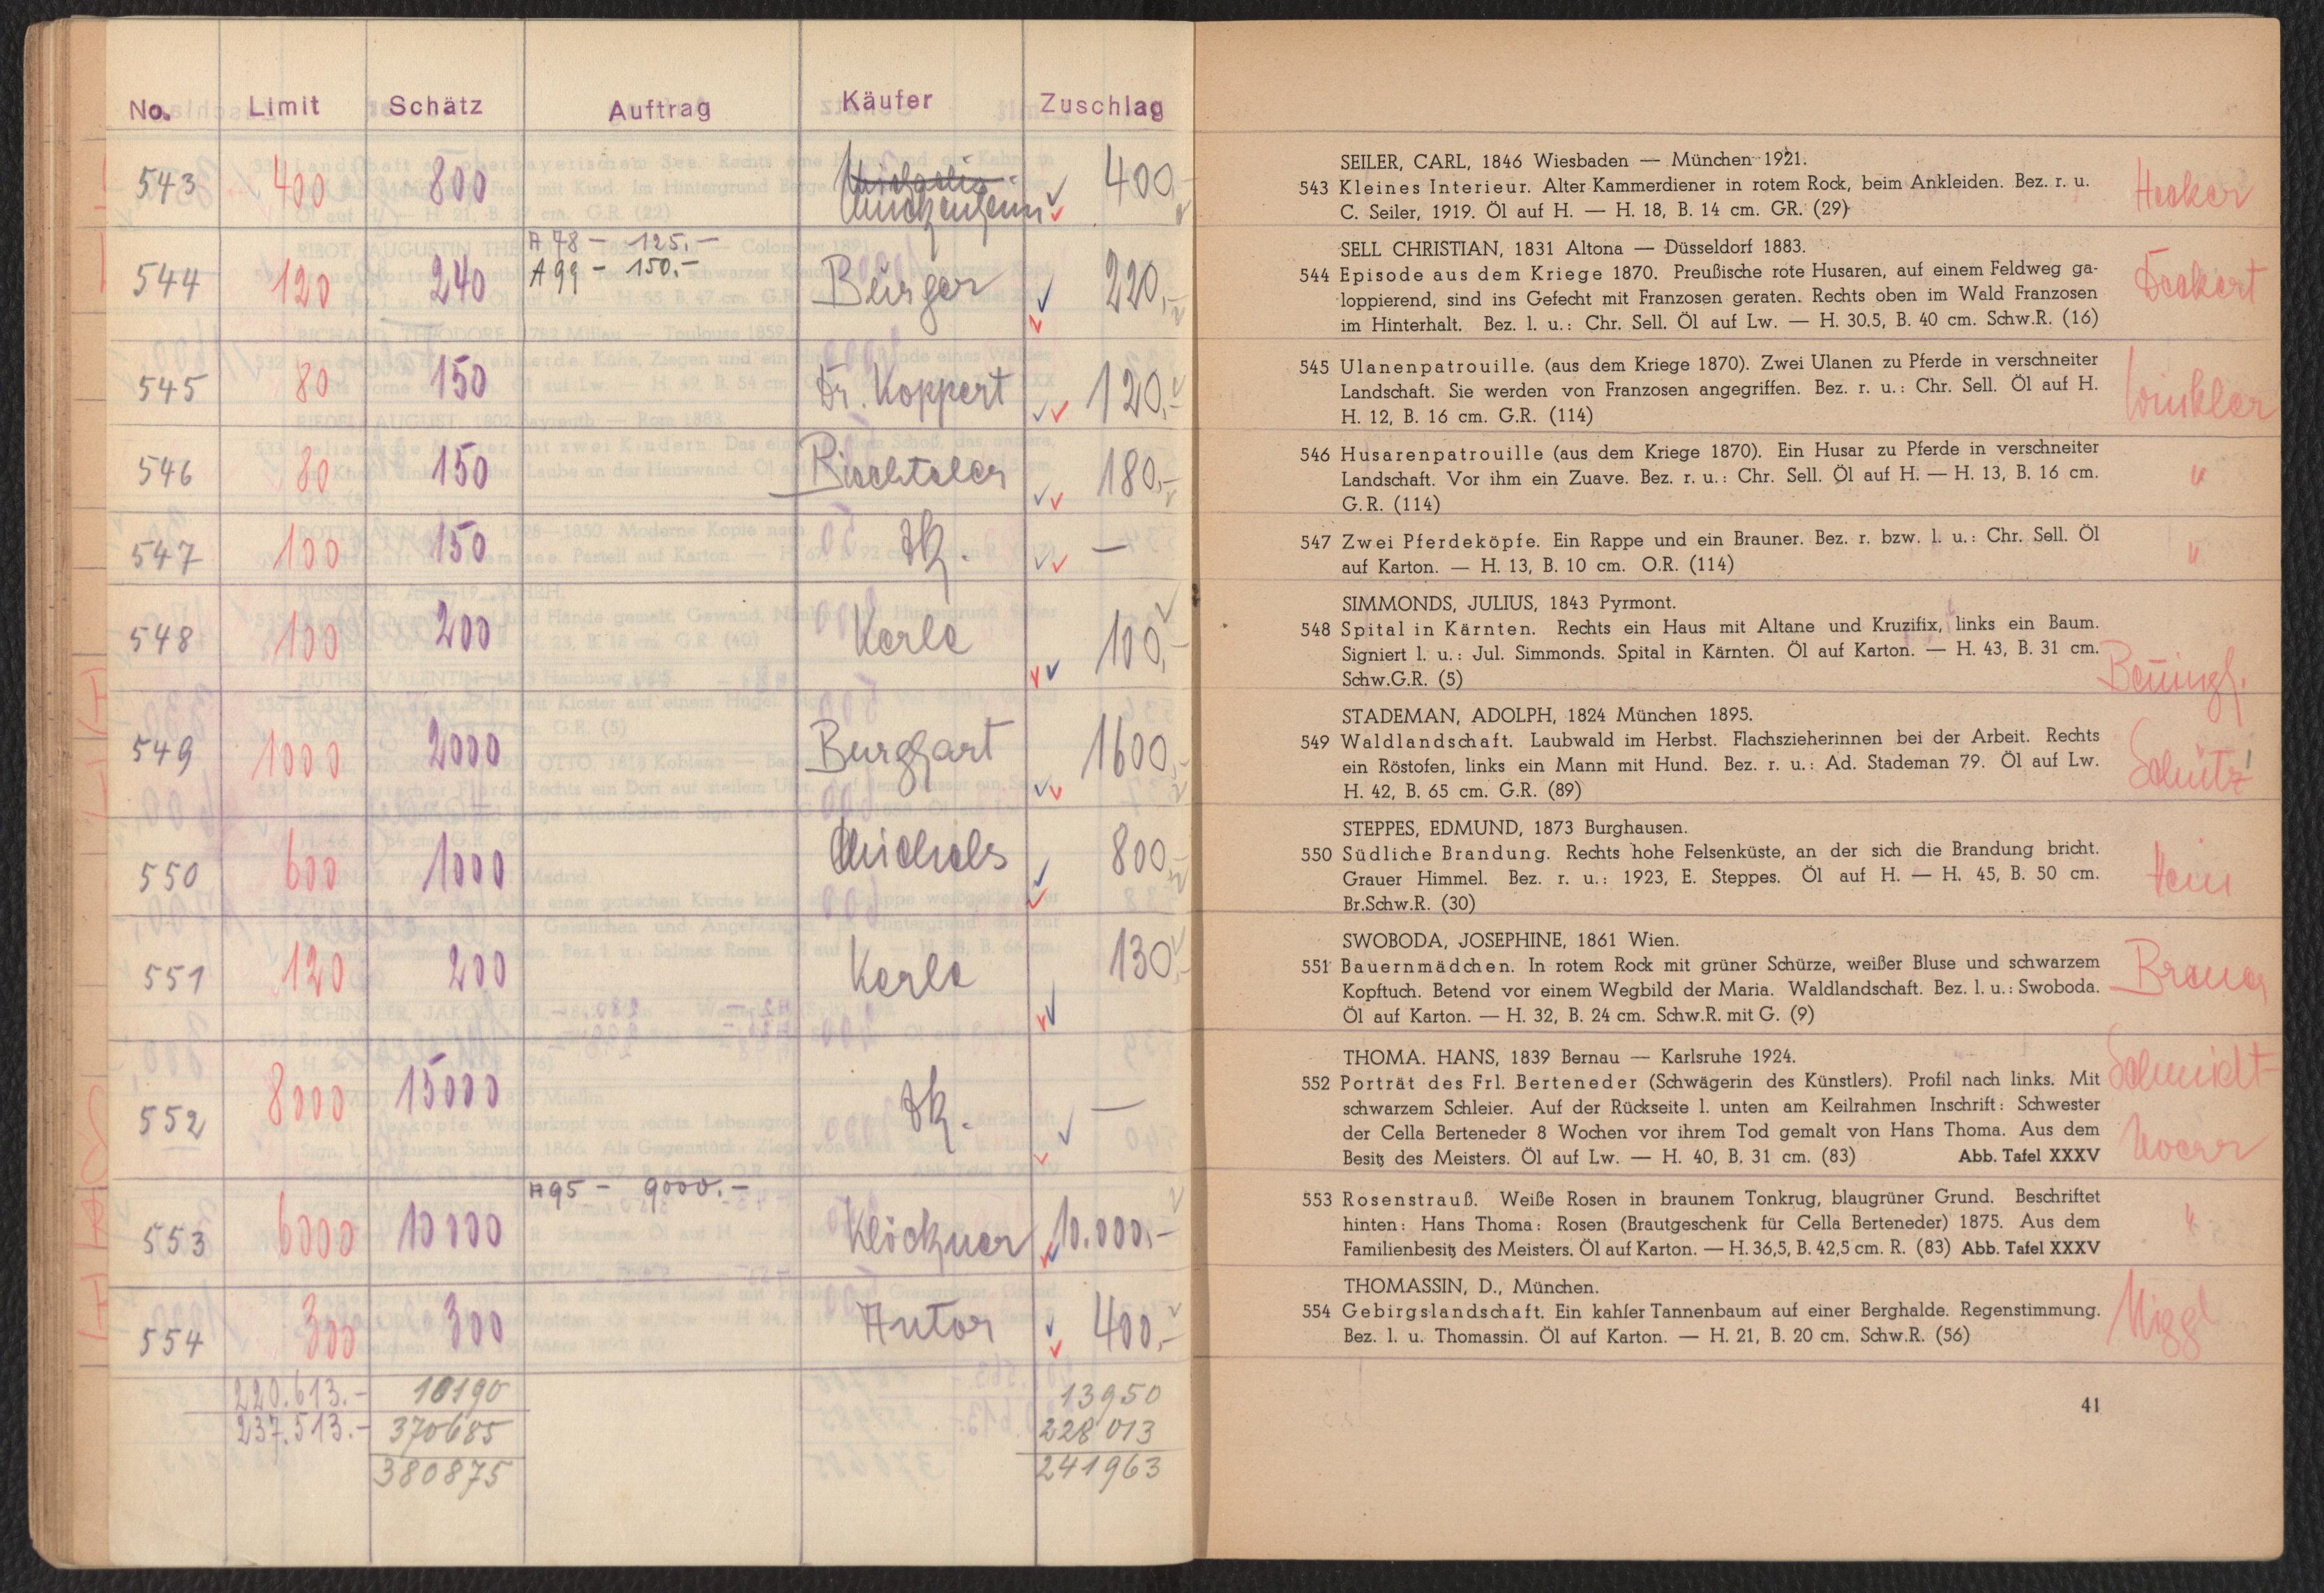 No. Limit Schätz Auftrag Käufer Zuschlag
543 400 800 400,-
A 78 - 125.-
544 120 240 A 99 - 150.- Bürger 220,-
545 80 150 Dr. Koppert 120,-
546 80 150 180,-
547 100 150 —
548 100 200 Kerle 100,-
549 1000 2000 Burghart 1600,-
550 600 1000 Michels 800,-
551 120 200 Kerle 130,-
552 8000 15000 —
A 95 - 9000.-
553 6000 10000 Klöckner 10.000,-
554 300 300 Autor 400,-
220.613.- 10190 13950
237.513.- 370685 228013
380875 241963
SEILER, CARL, 1846 Wiesbaden — München 1921.
543 Kleines Interieur. Alter Kammerdiener in rotem Rock, beim Ankleiden. Bez. r. u. Hecker
C. Seiler, 1919. Öl auf H. — H. 18, B. 14 cm. GR. (29)
SELL CHRISTIAN, 1831 Altona — Düsseldorf 1883.
544 Episode aus dem Kriege 1870. Preußische rote Husaren, auf einem Feldweg ga-
loppierend, sind ins Gefecht mit Franzosen geraten. Rechts oben im Wald Franzosen
im Hinterhalt. Bez. l. u.: Chr. Sell. Öl auf Lw. — H. 30.5, B. 40 cm. Schw.R. (16)
545 Ulanenpatrouille. (aus dem Kriege 1870). Zwei Ulanen zu Pferde in verschneiter
Landschaft. Sie werden von Franzosen angegriffen. Bez. r. u.: Chr. Sell. Öl auf H. Winkler
H. 12, B. 16 cm. G.R. (114)
546 Husarenpatrouille (aus dem Kriege 1870). Ein Husar zu Pferde in verschneiter
Landschaft. Vor ihm ein Zuave. Bez. r. u.: Chr. Sell. Öl auf H. — H. 13, B. 16 cm. "
G.R. (114)
547 Zwei Pferdeköpfe. Ein Rappe und ein Brauner. Bez. r. bzw. l. u.: Chr. Sell. Öl "
auf Karton. — H. 13, B. 10 cm. O.R. (114)
SIMMONDS, JULIUS, 1843 Pyrmont.
548 Spital in Kärnten. Rechts ein Haus mit Altane und Kruzifix, links ein Baum.
Signiert l. u.: Jul. Simmonds. Spital in Kärnten. Öl auf Karton. — H. 43, B. 31 cm.
Schw.G.R. (5)
STADEMAN, ADOLPH, 1824 München 1895.
549 Waldlandschaft. Laubwald im Herbst. Flachszieherinnen bei der Arbeit. Rechts
ein Röstofen, links ein Mann mit Hund. Bez. r. u.: Ad. Stademan 79. Öl auf Lw. Schütz
H. 42, B. 65 cm. G.R. (89)
STEPPES, EDMUND, 1873 Burghausen.
550 Südliche Brandung. Rechts hohe Felsenküste, an der sich die Brandung bricht.
Grauer Himmel. Bez. r. u.: 1923, E. Steppes. Öl auf H. — H. 45, B. 50 cm. Hein
Br.Schw.R. (30)
SWOBODA, JOSEPHINE, 1861 Wien.
551 Bauernmädchen. In rotem Rock mit grüner Schürze, weißer Bluse und schwarzem
Kopftuch. Betend vor einem Wegbild der Maria. Waldlandschaft. Bez. l. u.: Swoboda.
Öl auf Karton. — H. 32, B. 24 cm. Schw.R. mit G. (9)
THOMA. HANS, 1839 Bernau — Karlsruhe 1924.
552 Porträt des Frl. Berteneder (Schwägerin des Künstlers). Profil nach links. Mit Schmidt-
schwarzem Schleier. Auf der Rückseite l. unten am Keilrahmen Inschrift: Schwester
der Cella Berteneder 8 Wochen vor ihrem Tod gemalt von Hans Thoma. Aus dem
Besitz des Meisters. Öl auf Lw. — H. 40, B. 31 cm. (83) Abb. Tafel XXXV
553 Rosenstrauß. Weiße Rosen in braunem Tonkrug, blaugrüner Grund. Beschriftet
hinten: Hans Thoma: Rosen (Brautgeschenk für Cella Berteneder) 1875. Aus dem "
Familienbesitz des Meisters. Öl auf Karton. — H. 36,5, B. 42,5 cm. R. (83) Abb. Tafel XXXV
THOMASSIN, D., München.
554 Gebirgslandschaft. Ein kahler Tannenbaum auf einer Berghalde. Regenstimmung. Niggl
Bez. l. u. Thomassin. Öl auf Karton. — H. 21, B. 20 cm. Schw.R. (56)
41